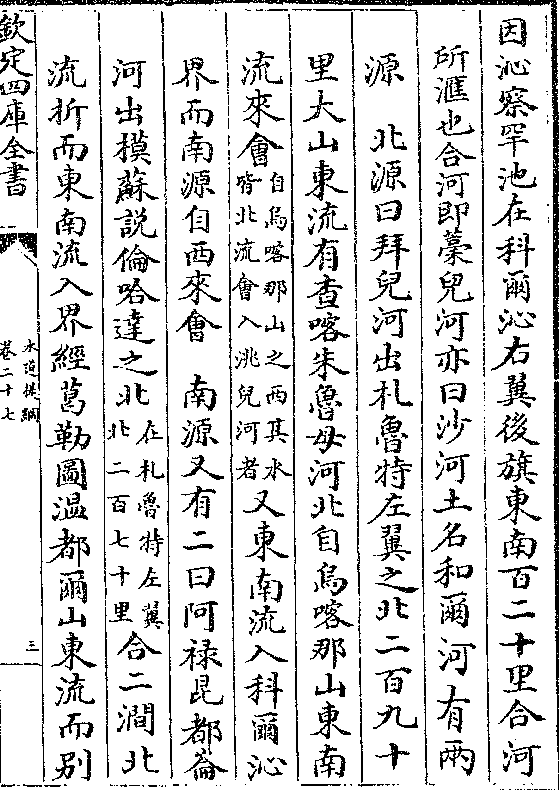 因沁察罕池在科爾沁右翼後旗東南百二十里合河
所滙也合河即藳兒河亦曰沙河土名和爾河有兩
源　北源曰拜兒河出札魯特左翼之北二百九十
里大山東流有查喀朱魯母河北自烏喀那山東南
流來會自烏喀那山之西其水皆北流會入洮兒河者又東南流入科爾沁
界而南源自西來會　南源又有二曰阿禄昆都崙
河出摸蘇説倫哈達之北在札魯特左翼北二百七十里合二澗北
流折而東南流入界經葛勒圖温都爾山東流而别
欽定四庫全書
水道提綱
卷二十七
三